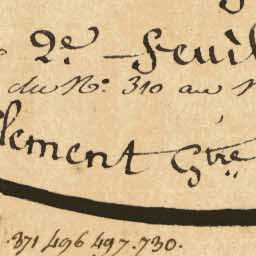 2e. Feuil
du No. 310 au N
lement Gtre
.371 496 497. 730.